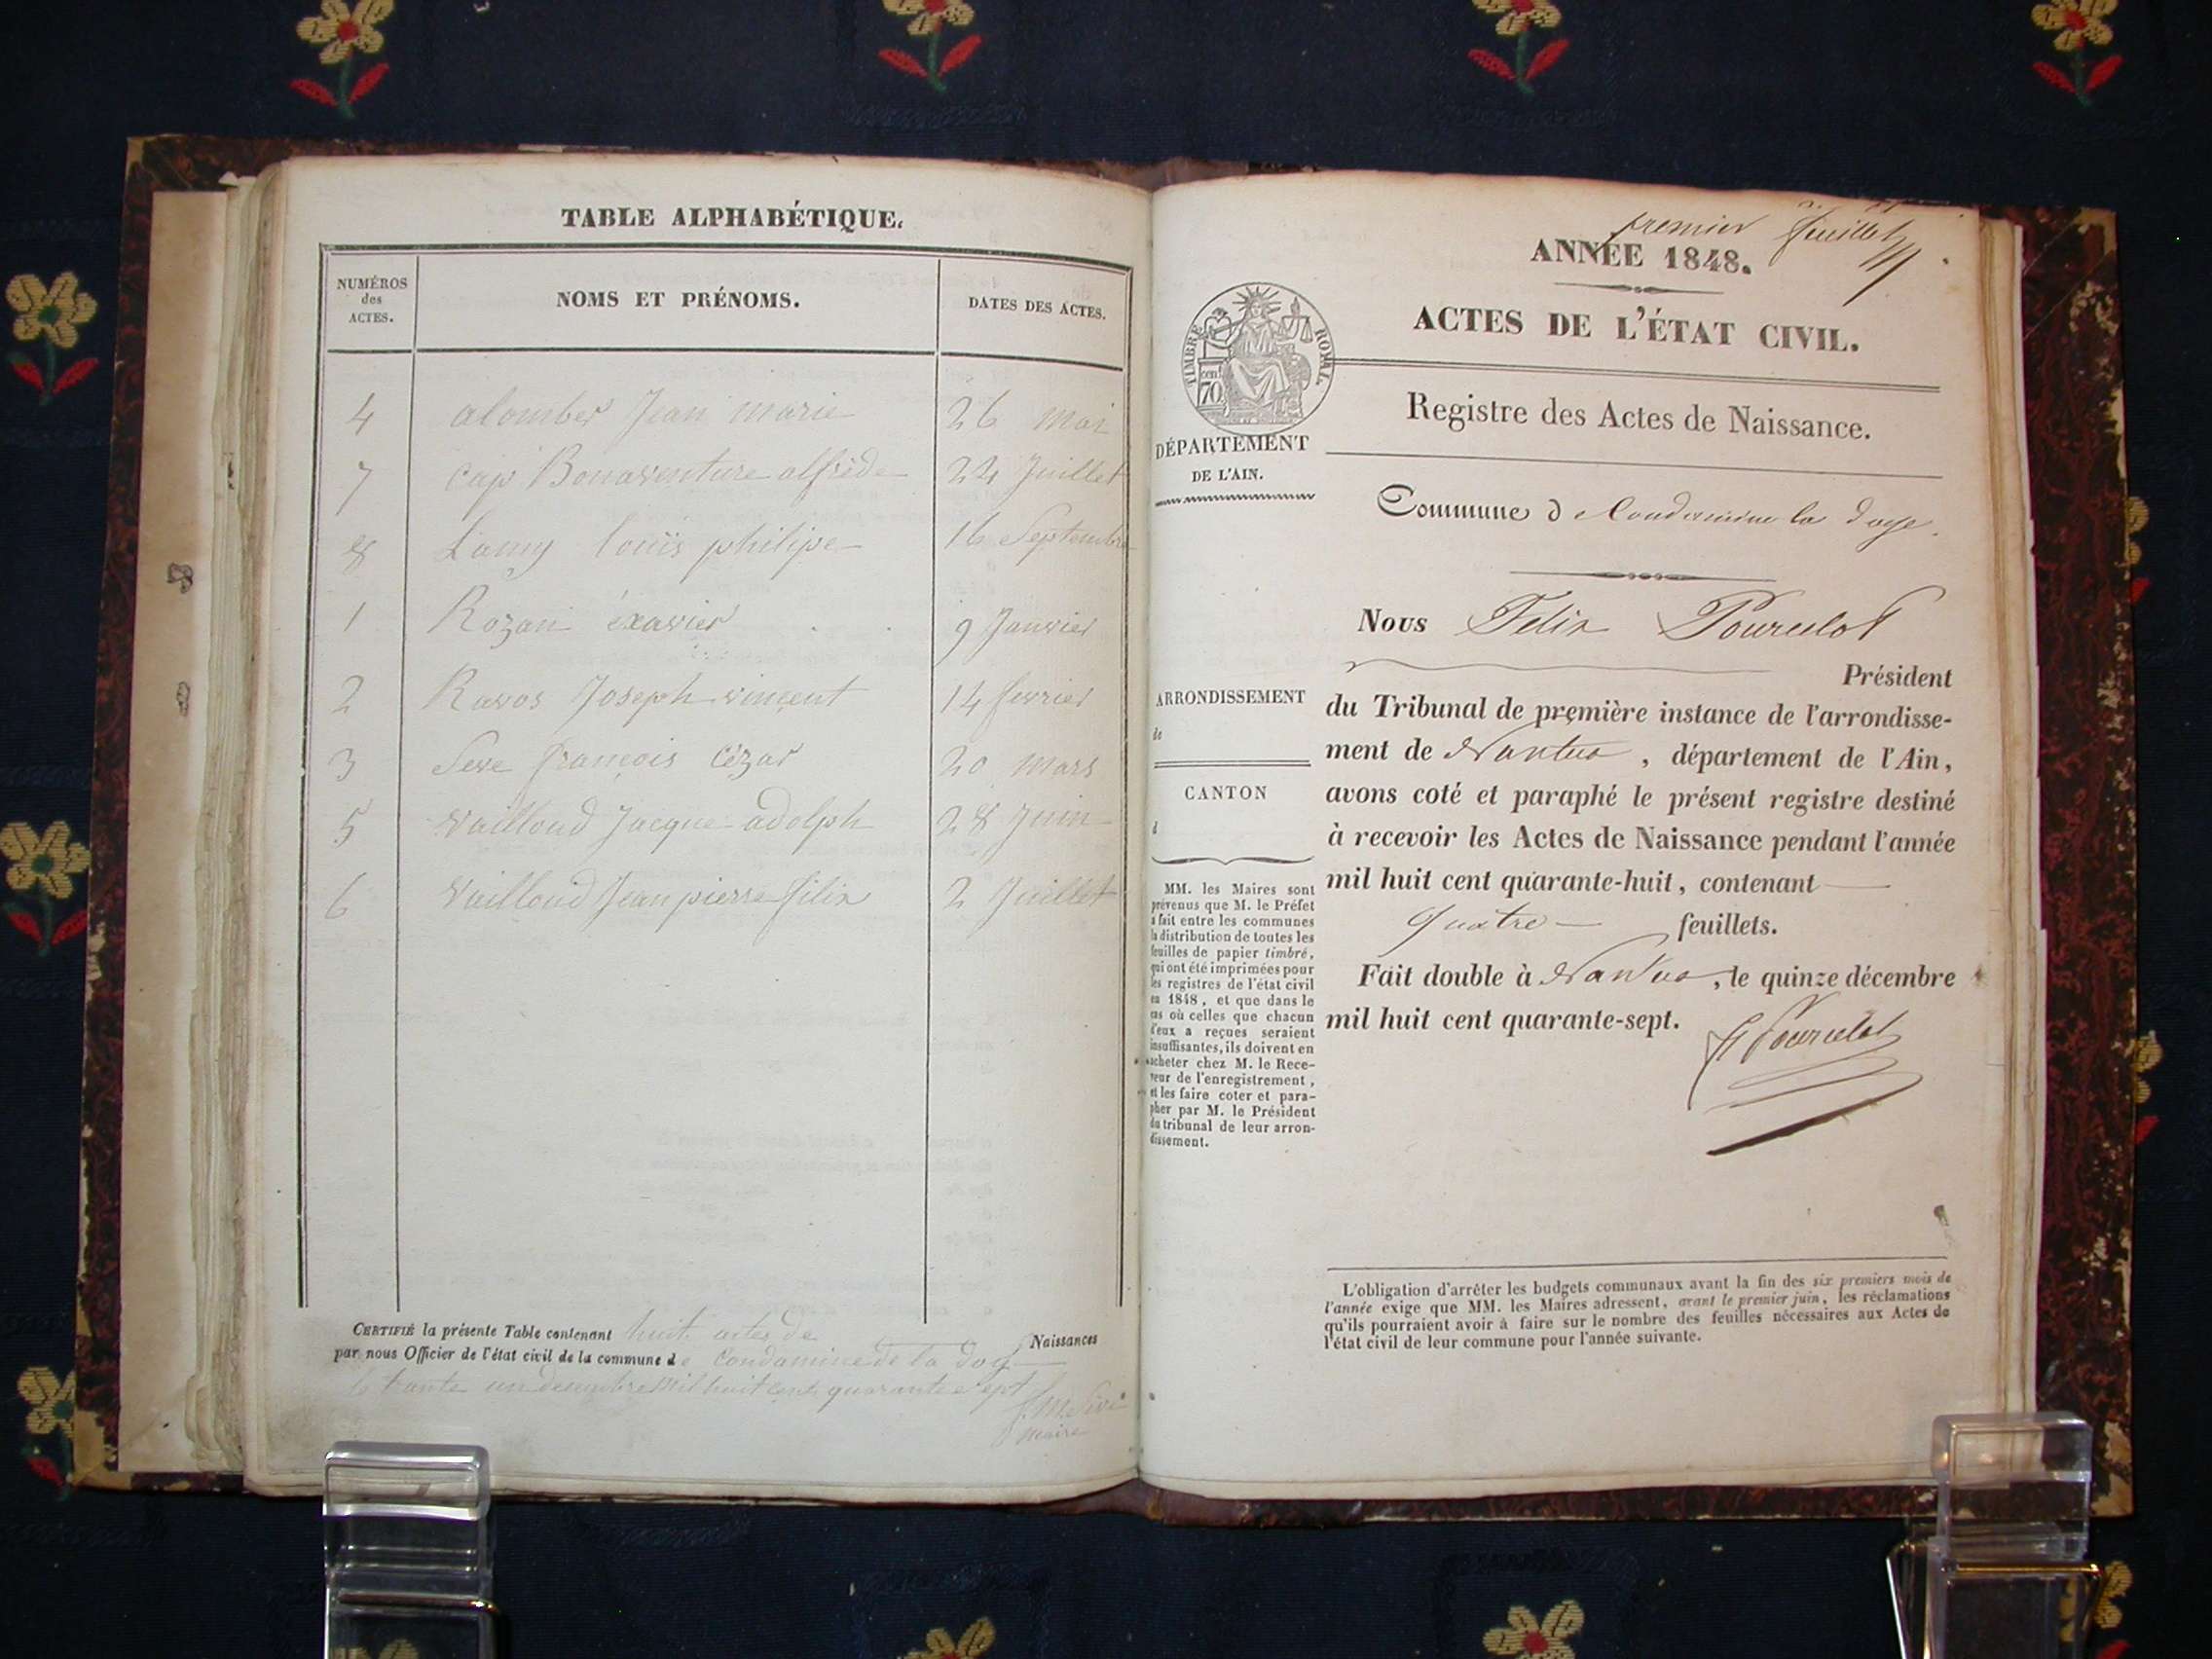 TABLE ALPHABÉTIQUE.
NUMÉROS
des
ACTES.
NOMS ET PRÉNOMS.
DATES DES ACTES.
4 alomber Jean marie 26 Mai
7 Cap Bonaventure alfrède 24 Juillet
8 Lamy louis philipe 16 Septembre
1 Rozan éxavier 9 Janvier
2 Ravos Joseph vincent 14 fevrier
3 Seve françois Cézar 20 mars
5 Vailloud Jacque adolph 28 Juin
6 Vailloud Jean pierre félix 2 Juillet
CERTIFIÉ la présente Table contenant huit actes de Naissances
par nous Officier de l'état civil de la commune de Condamine de la Doy
le trante un decembre Mil huit cent quarante sept
maire
premier feuillet
ANNÉE 1848.
ACTES DE L'ÉTAT CIVIL.
TIMBRE ROYAL.
cent. 70
DÉPARTEMENT
DE L'AIN.
Registre des Actes de Naissance.
Commune d Condamine la doye.
Nous Félix Pourcelot
Président
ARRONDISSEMENT
de
CANTON
d
du Tribunal de première instance de l'arrondisse-
ment de Nantua, département de l'Ain,
avons coté et paraphé le présent registre destiné
à recevoir les Actes de Naissance pendant l'année
mil huit cent quarante-huit, contenant
quatre feuillets.
Fait double à Nantua, le quinze décembre
mil huit cent quarante-sept.
F Pourcelot
MM. les Maires sont
prévenus que M. le Préfet
a fait entre les communes
la distribution de toutes les
feuilles de papier timbré,
qui ont été imprimées pour
les registres de l'état civil
en 1848, et que dans le
cas où celles que chacun
d'eux a reçues seraient
insuffisantes, ils doivent en
acheter chez M. le Rece-
veur de l'enregistrement,
et les faire coter et para-
pher par M. le Président
du tribunal de leur arron-
dissement.
L'obligation d'arrêter les budgets communaux avant la fin des six premiers mois de
l'année exige que MM. les Maires adressent, avant le premier juin, les réclamations
qu'ils pourraient avoir à faire sur le nombre des feuilles nécessaires aux Actes de
l'état civil de leur commune pour l'année suivante.